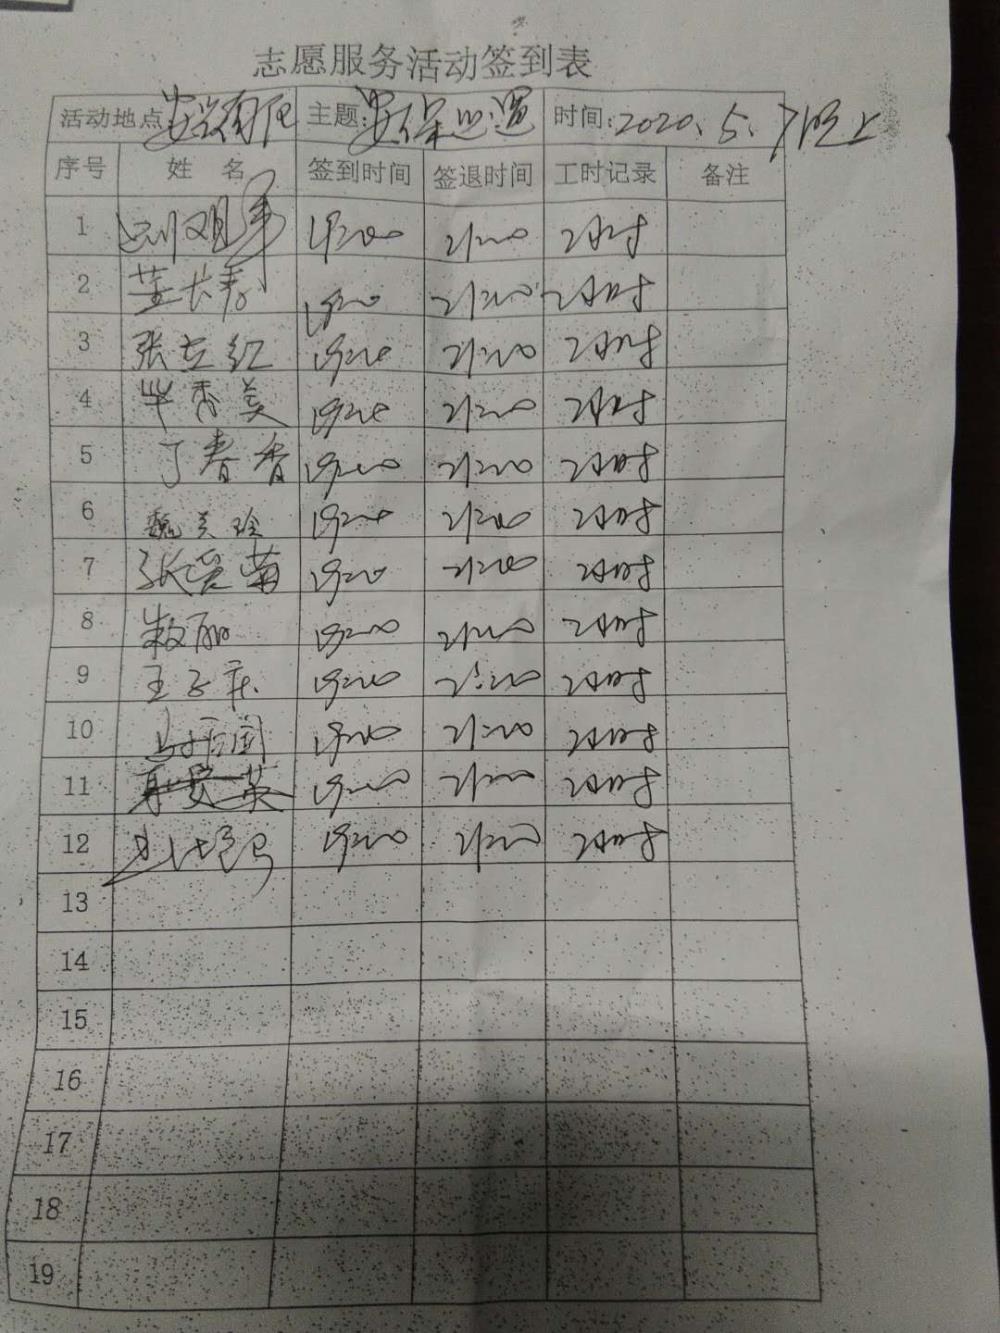 志愿服务活动签到表
活动地点 主题: 安保巡逻 时间: 2020.5.7晚上
序号 姓 名 签到时间 签退时间 工时记录 备注
1 19:00 21:00 2小时
2 董长春 19:00 21:00 2小时
3 张立红 19:00 21:00 2小时
4 毕秀美 19:00 21:00 2小时
5 丁春香 19:00 21:00 2小时
6 魏美玲 19:00 21:00 2小时
7 张爱菊 19:00 21:00 2小时
8 19:00 21:00 2小时
9 19:00 21:00 2小时
10 19:00 21:00 2小时
11 19:00 21:00 2小时
12 19:00 21:00 2小时
13
14
15
16
17
18
19